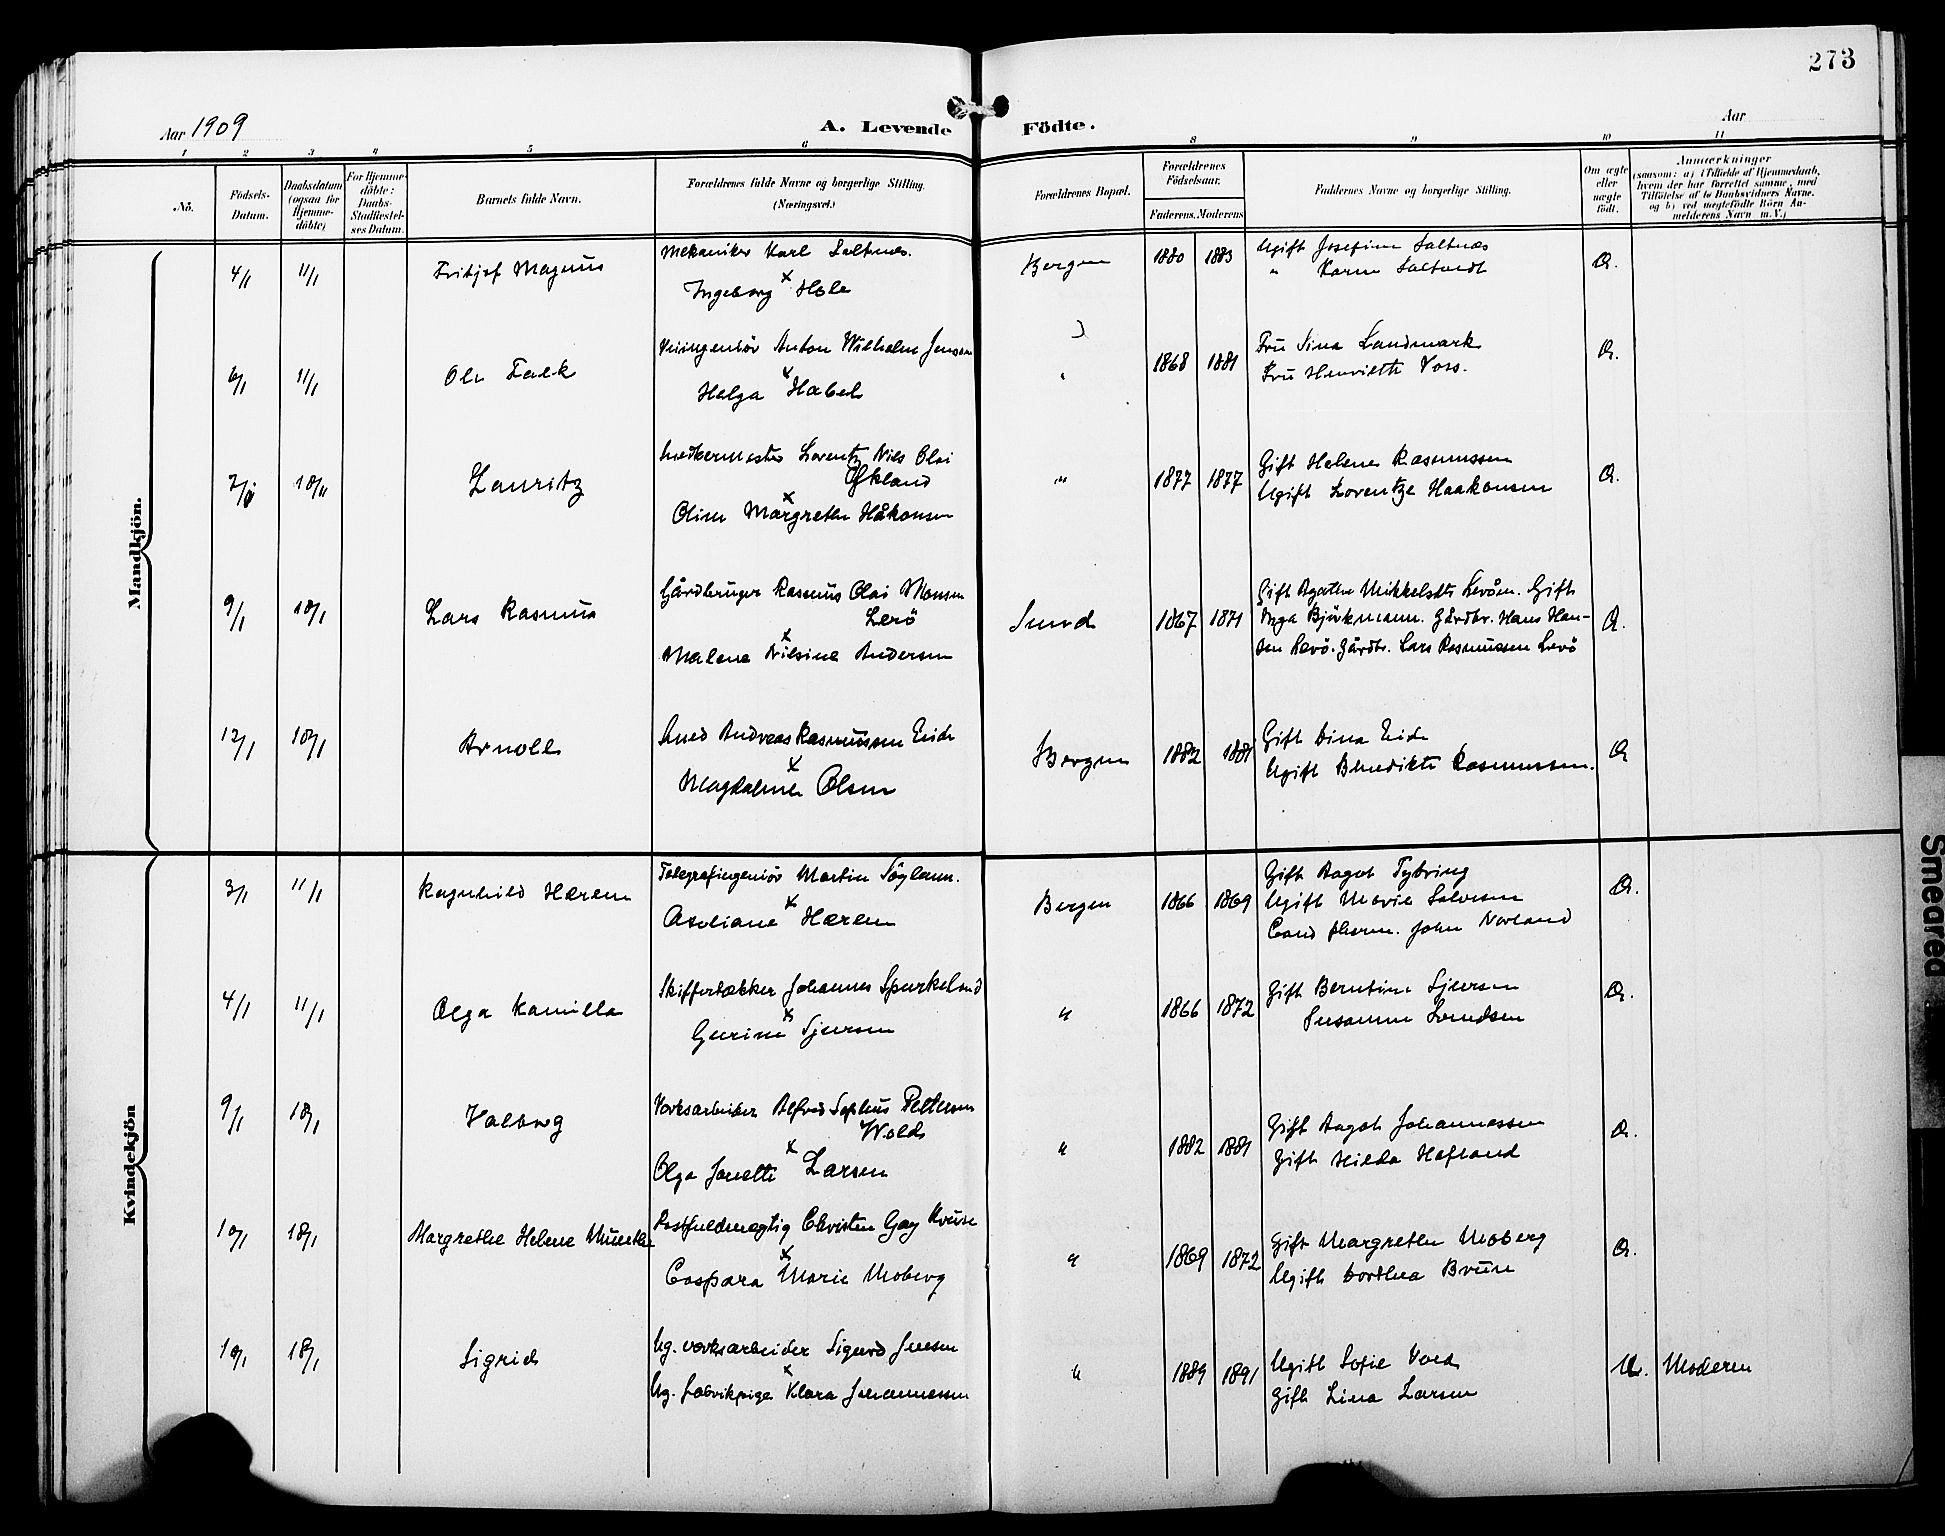 273
Aar 1909
A. Levende Födte.
Aar
1 2 3 4 5 6 8 9 10 11
No.
Födsels-Datum.
Daabsdatum (ogsaa for Hjemme-døbte)
For Hjemme-døbte: Daabs-Stadfæstel-ses Datum.
Barnets fulde Navn.
Forældrenes fulde Navne og borgerlige Stilling.
(Næringsvei.)
Forældrenes Bopæl.
Forældrenes Födselsaar.
Faderens. Moderens
Faddernes Navne og borgerlige Stilling.
Om ægte eller uægte født.
Anmærkninger
(saasom: a) i Tilfælde af Hjemmedaab, hvem der har forrettet samme, med Tilføielse af to Daabsvidners Navne, og b) ved uægtefödte Börn An-melderens Navn m. V.)
Mandkjön.
4/1 11/1 Fritjof Magnus
Mekaniker Karl Saltnes.
x
Ingeborg Hole
Bergen 1880 1883
Ugift Josefine Saltnæs
" Karen Saltvedt
Æ.
6/1 11/1 Ole Falck
Veiingeniør Anton Wilhelm Jensen
x
Helga Habel
" 1868 1881
Fru Sina Landmark
Fru Henriette Voss.
Æ.
18/1 Lauritz
Snedkermester Lorentz Nils Olai
x
Oline Margrethe Håkonsen
" 1877 1877
Gift Helene Rasmussen
Ugift Lorentze Haakonsen
Æ.
9/1 18/1 Lars Rasmus
Gårdbruger Rasmus Olai Monsen
Lerö
x
Malene Nilsine Andersen
Sund 1867 1871
Gift Agathe Mikkelsdtr Leröen. Gift
Inga Björkmann. Gårdbr. Hans Han-
sen Lerö. Gårdbr. Lars Rasmussen Lerö
Æ.
12/1 18/1 Arnold
Smed Andreas Rasmussen Eide
x
Magdalene Olsen
Bergen 1882 1881
Gift Dina Eide
Ugift Benedikte Rasmussen.
Æ
Kvindekjön
3/1 11/1 Ragnhild Hærem
Telegrafingeniør Martin Söyland.
x
Aseliane Hærem
Bergen 1866 1869
Gift Dagot Tybring
Ugift Marie Salvesen
Cand pharm. John Norland
Æ.
4/1 11/1 Olga Kamilla
Skiffertækker Johannes Spurkeland
x
Gurine Sjursen
" 1866 1872
Gift Berntine Sjursen
Susanne Lundsen
Æ.
9/1 18/1 Valborg
Verksarbeider Alfred Sophus Pettersen
Wold
x
Olga Janette Larsen
" 1882 1881
Gift Dagot Johannessen
Gift Hilda Hafland
Æ.
10/1 18/1 Margrethe Helene Munthe
Postfuldmægtig Christen Gay Kruse
x
Caspara Marie Moberg
" 1869 1872
Gift Margrethe Moberg
Ugift Dorthea Bruse
Æ.
10/1 18/1 Sigrid
Ug. verksarbeider Sigurd Jensen
x
Ug. fabrikpige Klara Johannessen
" 1889 1891
Ugift Sofie Vold
Gift Lina Larsen
U. Moderen
Smeared